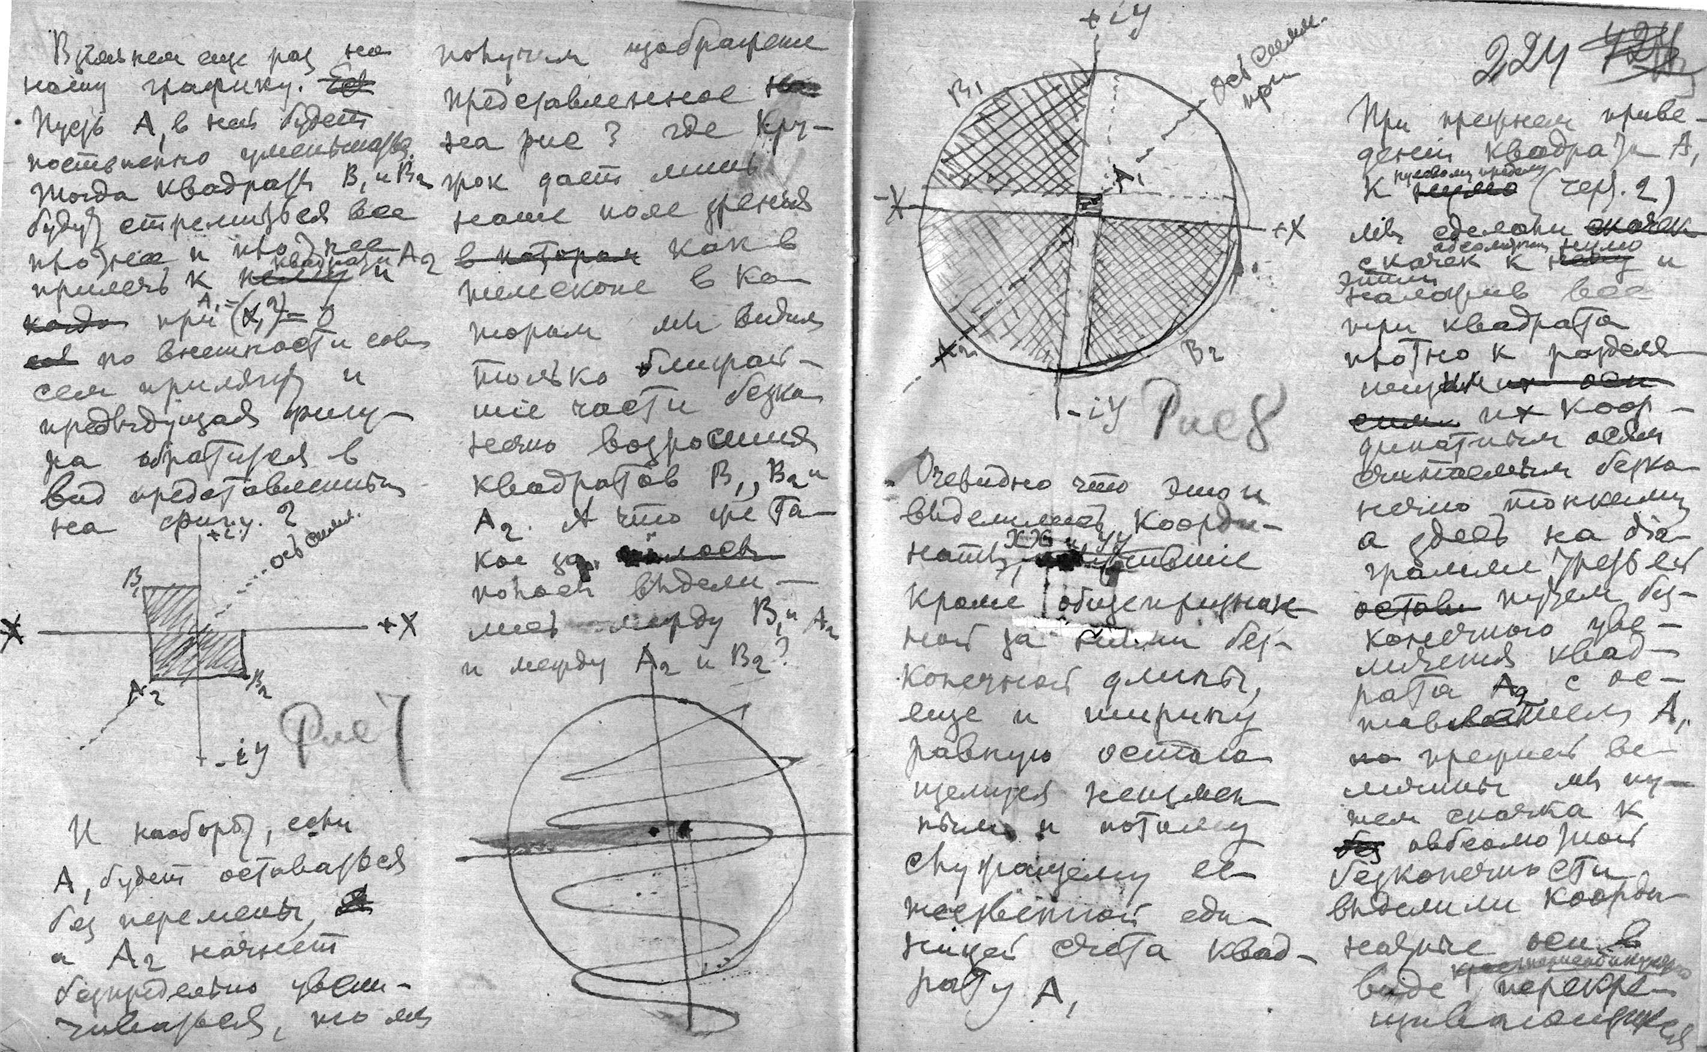 Взглянем еще раз на
нашу графику.
Пусть A₁ в ней будет
постепенно уменьшаться
Тогда квадраты B₁ и B₂
будут стремиться все
плотнее и плотнее
прилечь к квадрату A₂ и
при A₁ = 0
по внешности сов
сем прилягут и
предыдущая фигу-
ра обратится в
вид представленный
на фигу. 2
+iy
ось симм.
B₁
X
+X
A₂
B₂
-iy
Рис 7
И наоборот, если
A₁ будет оставаться
без перемены,
а A₂ начнет
безпредельно увели-
чиваться, то мы
получим изображение
представленное
на рис 3 где кру-
жок дает лишь
наше поле зрения
в котором как в
телескопе в ко-
тором мы видим
только ближай-
шие части безко
нечно возросших
квадратов B₁, B₂ и
A₂. А что же та-
кое за
полосы выдели-
лись между B₁ и A₂
и между A₂ и B₂?
+iy
224
B₁
ось симм.
A₁
-X
+X
A₂
B₂
-iy
Рис 8
Очевидно что это и
выделились коорди-
наты XX и YY
кроме общепризнан-
ной за ними без-
конечной длины,
еще и ширину
равную остаю-
щемуся неизмен-
ным и потому
служащему ее
естественной еди-
ницей счета квад-
рату A₁
При прежнем приве-
дении квадрата A₁
к нулю (черт. 2)
мы сделали скачек
скачек к и
этим
наложив все
три квадрата
плотно к разделя-
ющим
их коор-
динатным осям
считаемым безко-
нечно тонкими
а здесь на диа-
грамме третьей
путем без-
конечного уве-
личения квад-
рата A₂ с ос-
тавлением A₁
по прежней ве-
личины мы пу-
тем скачка к
абсолютной
безконечности
выделили коорди-
натные оси в
виде перекре-
щивающихся